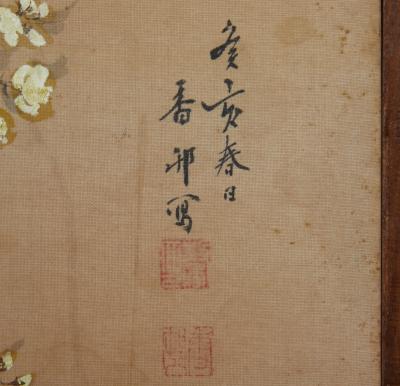 癸亥春日
香邨寫